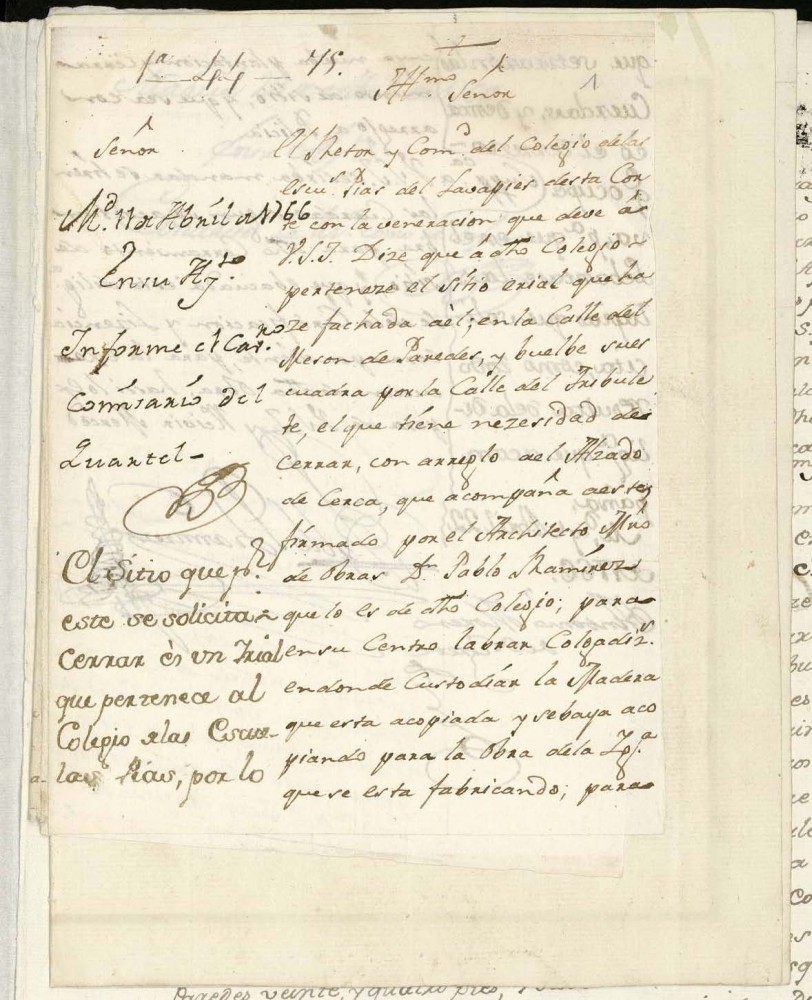 75.
Yllmo. Señor
Señor
Md. 11 de Abril de 1766
En su Ayto.
Informe el Cavro.
Comisario del
Quartel-
El sitio que pr.
este se solicita
cerrar és un Írial
que pertenece al
Colegio de las Escue-
las Pías, por lo
El Retor y Comd. del Colegio de las
escus. Pias del Lavapies desta Cor
te con la veneracion que deve á
V.S.I. Dize que á dho Colegio
perteneze el sitio erial que ha
ze fachada aèl; en la Calle del
Meson de Paredes, y buelbe su es
cuadra por la Calle del Tribule
te, el que tiene nezesidad de
cerrar, con arreglo ael Alzado
de Cerca, que acompaña a este
firmado por el Architecto Mro
de obras Dn. Pablo Ramirez
que lo es de dho Colegio; para
en su Centro labrar Colgadizs.
en donde Custodiar la Madera
que esta acopiada y se baya aco
piando para la obra de la Iga.
que se esta fabricando; para
Paredes veinte, y quatro pies,